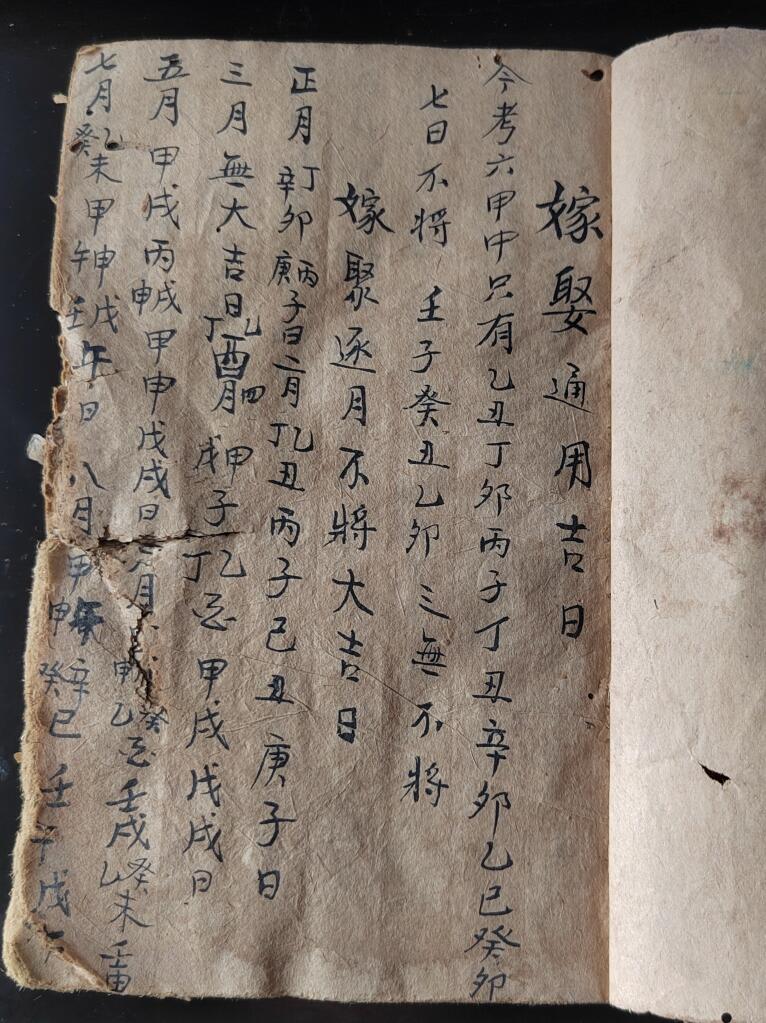 嫁娶通用吉日
今考六甲中只有乙丑丁卯丙子丁丑辛卯乙巳癸卯
七日不将 壬子癸丑乙卯三無不将
嫁聚逐月不將大吉日
正月丁辛卯丙庚子日二月乙丁丑丙子己丑庚子日
三月無大吉日乙丁酉四月甲戌子乙丁忌甲戌戊戌日
五月甲戌丙申戌甲申戊戌日六月甲乙忌壬戌癸乙未壬
七月乙癸未甲申戌壬午日八月甲申辛癸巳壬午戊